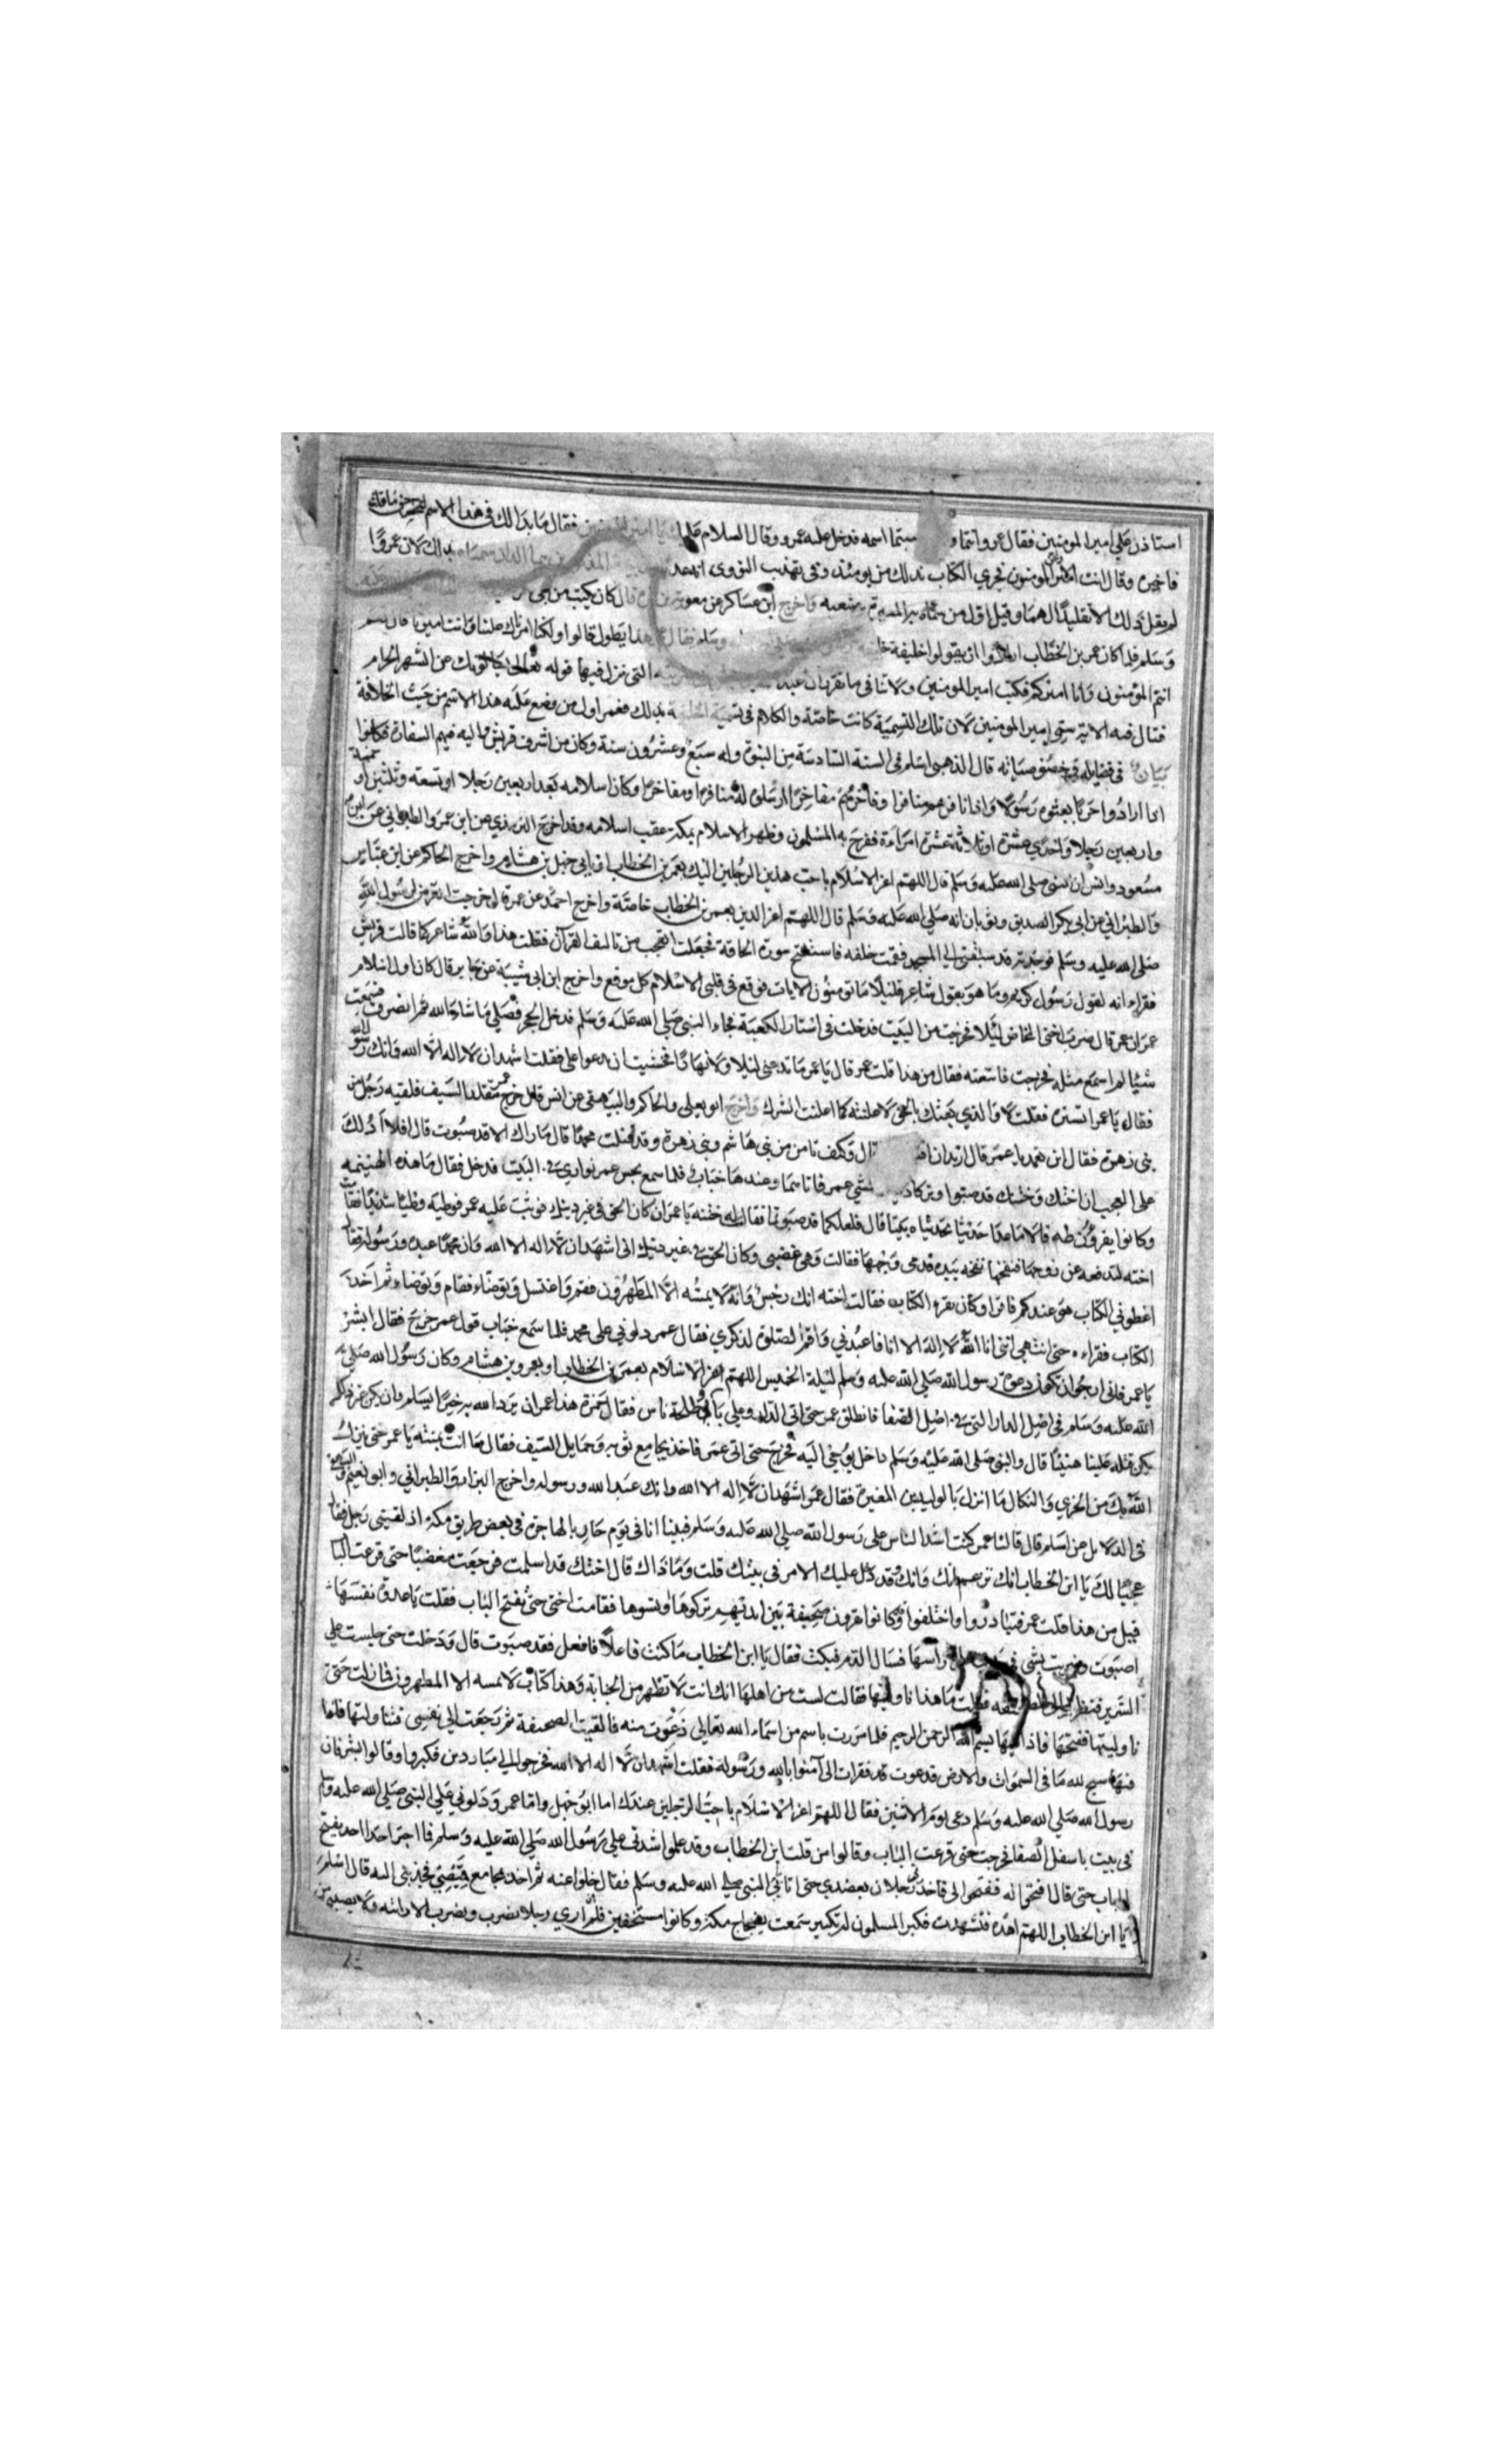 استاذن علي امير المومنين فقال عمرو انتما و سميتما اسمه فدخل عليه عمرو وقال السلام عليك يا امير المومنين فقال ما بدا لك في هذا الاسم
فاخبره وقال انت الامير المومنون فجري الكتاب بذلك من يومئذ وفي تهذيب النووي
لم يقل ذلك الا تقليدا لهما وقيل اول من سماه به المغيرة بن شعبه واخرج ابن عساكر عن معوية بن قرة قال كان يكتب من ابي بكر
وسلم فلما كان عمر بن الخطاب ارادوا ان يقولوا خليفة قال هذا يطول قالوا لا ولكنا امرناك علينا وانت اميرنا قال نعم
انتم المؤمنون وانا اميركم فكتب امير المومنين ولا ينافي ما تقرر ان عبد التي نزل فيها قوله تعالى يسألونك عن الشهر الحرام
قتال فيه الاية سمي امير المومنين لان تلك التسمية كانت خاصة والكلام في تسمية الخليفة بذلك فعمر اول من وضع عليه هذا الاسم من حيث الخلافة
في فضايله وخصوصياته قال الذهبي اسلم في السنة السادسة من النبوة وله سبع وعشرون سنة وكان من اشرف قريش واليه فيهم السفارة فكانوا
اذا ارادوا حربا بعثوه رسولا واذا نافرهم منافر او فاخرهم مفاخر ارسلوه له منافرا ومفاخرا وكان اسلامه بعد اربعين رجلا او تسعه وثلثين او خمسة
واربعين رجلا واحدي عشرة او ثلاثة عشرة امراءة ففرح به المسلمون وظهر الاسلام بمكة عقب اسلامه وقد اخرج الترمذي عن ابن عمر والطبراني عن ابن
مسعود وانس ان النبي صلي الله عليه وسلم قال اللهم اعز الاسلام باحب هذين الرجلين اليك بعمر بن الخطاب او بابي جهل بن هشام واخرج الحاكم عن ابن عباس
والطبراني عن ابي بكر الصديق وثوبان انه صلي الله عليه وسلم قال اللهم اعز الدين بعمر بن الخطاب خاصة واخرج احمد عن عمر قال خرجت اتعرض لرسول الله
صلي الله عليه وسلم فوجدته قد سبقني الي المسجد فقمت خلفه فاستفتح سورة الحاقة فجعلت اتعجب من تاليف القرآن فقلت هذا والله شاعر كما قالت قريش
فقراء انه لقول رسول كريم وما هو بقول شاعر قليلا ما تومنون الايات فوقع في قلبي الاسلام كل موقع واخرج ابن ابي شيبة عن جابر قال كان اول اسلام
عمر ان عمر قال ضرب اختي المخاض ليلا فخرجت من البيت فدخلت في استار الكعبة فجاء النبي صلي الله عليه وسلم فدخل الحجر فصلي ما شاء الله ثم انصرف فسمعت
شيئا لم اسمع مثله فخرجت فاتبعته فقال من هذا قلت عمر قال يا عمر ما تدعني ليلا ولا نهارا فخشيت ان يدعوا علي فقلت اشهد ان لا اله الا الله وانك رسول الله
فقال يا عمر استره فقلت لا والذي بعثك بالحق لاعلننه كما اعلنت الشرك واخرج ابو يعلي والحاكم والبيهقي عن انس قال خرج عمر متقلدا السيف فلقيه رجل من
بني زهرة فقال اين تعمد يا عمر قال اريد ان اقتل قال وكيف تامن من بني هاشم وبني زهرة وقد قتلت محمدا قال ما اراك الا قد صبوت قال افلا ادلك
على العجب ان اختك وختنك قد صبوا وتركا دينك فمشي عمر فاتاهما وعندهما خباب فلما سمع بحس عمر تواري في البيت فدخل فقال ما هذه الهينمه
وكانوا يقرؤن طه قالا ما عدا حديثا تحدثناه بيننا قال فلعلكما قد صبوتما فقال له ختنه يا عمر ان كان الحق في غير دينك فوثب عليه عمر فوطيه وطئا شديدا فجاءت
اخته لتدفعه عن زوجها فنفحها نفحه بيده فدمي وجهها فقالت وهي غضبي وكان الحق في غير دينك اني اشهد ان لا اله الا الله وان محمدا عبده ورسوله فقال
اعطوني الكتاب هو عندكم فاقراه وكان يقرء الكتاب فقالت اخته انك رجس وانه لا يمسه الا المطهرون فقم واغتسل وتوضاء فقام وتوضاء ثم اخذ
الكتاب فقراءه حتى انتهي انني انا الله لا اله الا انا فاعبدني واقم الصلوة لذكري فقال عمر دلوني على محمد فلما سمع خباب قول عمر خرج فقال ابشر
يا عمر فاني ارجو ان تكون دعوة رسول الله صلي الله عليه وسلم ليلة الخميس اللهم اعز الاسلام بعمر بن الخطاب او بعمرو بن هشام وكان رسول الله صلي
الله عليه وسلم في اصل الدار التي في اصل الصفا فانطلق عمر حتى اتي الدار وعلي بابها حمزة وطلحة وناس فقال حمزة هذا عمر ان يرد الله به خيرا يسلم وان يكن غير ذلك
يكن قتله علينا هينا قال والنبي صلى الله عليه وسلم داخل يوحي اليه فخرج حتى اتي عمر فاخذ بمجامع ثوبه وحمايل السيف فقال ما انت بمنته يا عمر حتى ينزل
الله بك من الخزي والنكال ما انزل بالوليد بن المغيرة فقال عمر اشهد ان لا اله الا الله وانك عبد الله ورسوله واخرج البزار والطبراني وابو نعيم والبيهقي
في الدلايل عن اسلم قال قال لنا عمر كنت اشد الناس على رسول الله صلي الله عليه وسلم فبينا انا في يوم حار بالهاجرة في بعض طريق مكة اذ لقيني رجل فقال
عجبا لك يا ابن الخطاب انك تزعم انك وانك وقد دخل عليك الامر في بيتك قلت وما ذاك قال اختك قد اسلمت فرجعت مغضبا حتى قرعت الباب
قيل من هذا قلت عمر فتبادروا واختفوا وكانوا يقرون صحيفة بين ايديهم تركوها ونسوها فقامت اختي حتى تفتح الباب فقلت يا عدوة نفسها
اصبوت وضربت بشي في يدي علي راسها فسال الدم فبكت فقال يا ابن الخطاب ما كنت فاعلا فافعل فقد صبوت قال ودخلت حتى جلست علي
السرير فنظرت الي الصحيفه فقلت ما هذا ناوليها فقالت لست من اهلها انك انت لا تطهر من الجنابة وهذا كتاب لا يمسه الا المطهرون فما زلت حتى
ناولتنيها ففتحتها فاذا فيها بسم الله الرحمن الرحيم فلما مررت باسم من اسماء الله تعالي ذعرت منه فالقيت الصحيفة ثم رجعت الي نفسي فتناولتها فاذا
فيها سبح لله ما في السموات والارض فذعرت فقرات الى آمنوا بالله ورسوله فقلت اشهد ان لا اله الا الله فخرجوا الي مبادرين فكبروا وقالوا ابشر فان
رسول الله صلي الله عليه وسلم دعي يوم الاثنين فقال اللهم اعز الاسلام باحب الرجلين عندك اما ابو جهل واما عمر ودلوني علي النبي صلي الله عليه وسلم
في بيت باسفل الصفا فخرجت حتى قرعت الباب وقالوا من قلت ابن الخطاب وقد علموا شدتي علي رسول الله صلي الله عليه وسلم فما اجترا احد يفتح
الباب حتى قال افتحوا له ففتحوا لي فاخذ رجلان بعضدي حتى اتيا بي النبي صلي الله عليه وسلم فقال خلوا عنه ثم اخذ بمجامع قميصي فجذبني اليه قال اسلم
يا ابن الخطاب اللهم اهده فتشهدت فكبر المسلمون تكبير سمعت بفجاج مكة وكانوا مستخفين فلم اري رجلا يضرب ويضرب الا رايته ولا يصيبني من